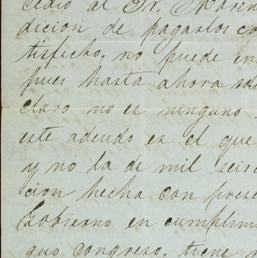 cedió al Sr. Moren
dicion de pagarlos co
tisfecho, no puede en
pues hasta ahora solo
claro no es ninguno
este adeudo es el que
y no la de mil seisc
cion hecha con prese
Gobierno en cumplim
guo congreso, tiene